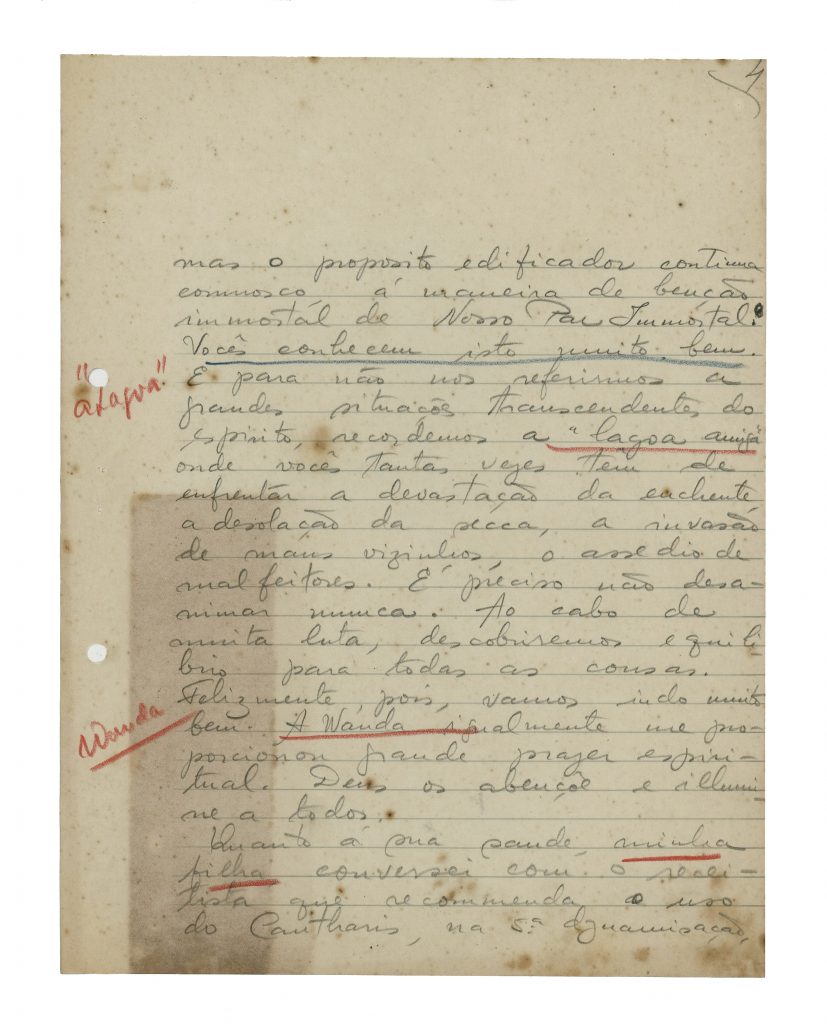 4
mas o proposito edificador continua
comnosco á maneira de benção
immortál de Nosso Pae Immortal.
Vocês conhecem isto muito bem.
"a Lagoa"
E para não nos referirmos a
grandes situações transcendentes do
espirito, recordemos a "lagoa amiga"
onde vocês tantas vezes têm de
enfrentar a devastação da enchente,
a desolação da secca, a invasão
de maus vizinhos, o assedio de
malfeitores. É preciso não desa-
nimar nunca. Ao cabo de
muita luta, descobriremos equili-
brio para todas as cousas.
Felizmente, pois, vamos indo muito
Wanda
bem. A Wanda igualmente me pro-
porcionou grande prazer espiri-
tual. Deus os abençõe e illumi-
ne a todos.
Quanto á sua saude, minha
filha conversei com o recei-
tista que recommenda o uso
do Cantharis, na 5ª dynamisação,